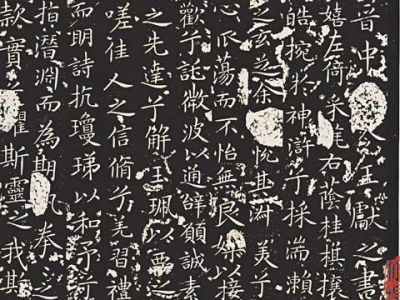 晉中令王獻之書
嬉左倚采旄右蔭桂棋攘
皓捥於神滸兮採湍瀨
之玄芝余悦其淑美兮
心蕩而不怡無良媒以接
歡兮託微波以通辭願誠素
之先達兮解玉珮以要之
嗟佳人之信脩兮羌習禮
而明詩抗瓊珶以和予兮
指潛淵而為期拳之
款實兮懼斯靈之我欺